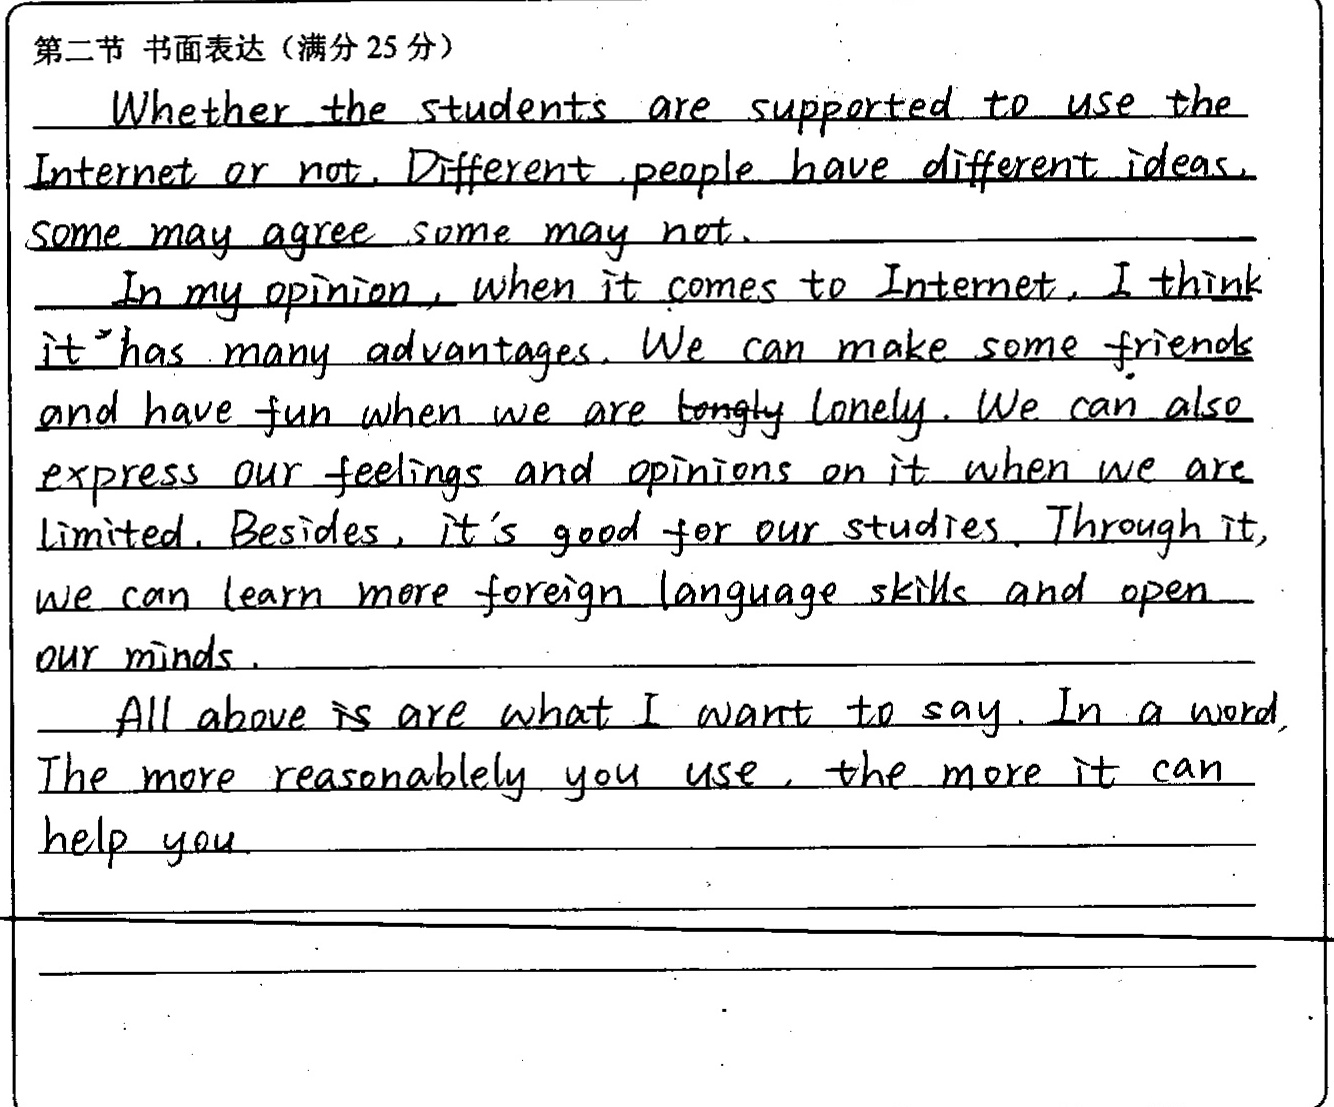 第二节 书面表达（满分 25 分）
Whether the students are supported to use the
Internet or not. Different people have different ideas.
some may agree some may not.
In my opinion, when it comes to Internet, I think
it has many advantages. We can make some friends
and have fun when we are tongly lonely. We can also
express our feelings and opinions on it when we are
limited. Besides, it's good for our studies. Through it,
we can learn more foreign language skills and open
our minds.
All above is are what I want to say. In a word,
The more reasonablely you use, the more it can
help you.